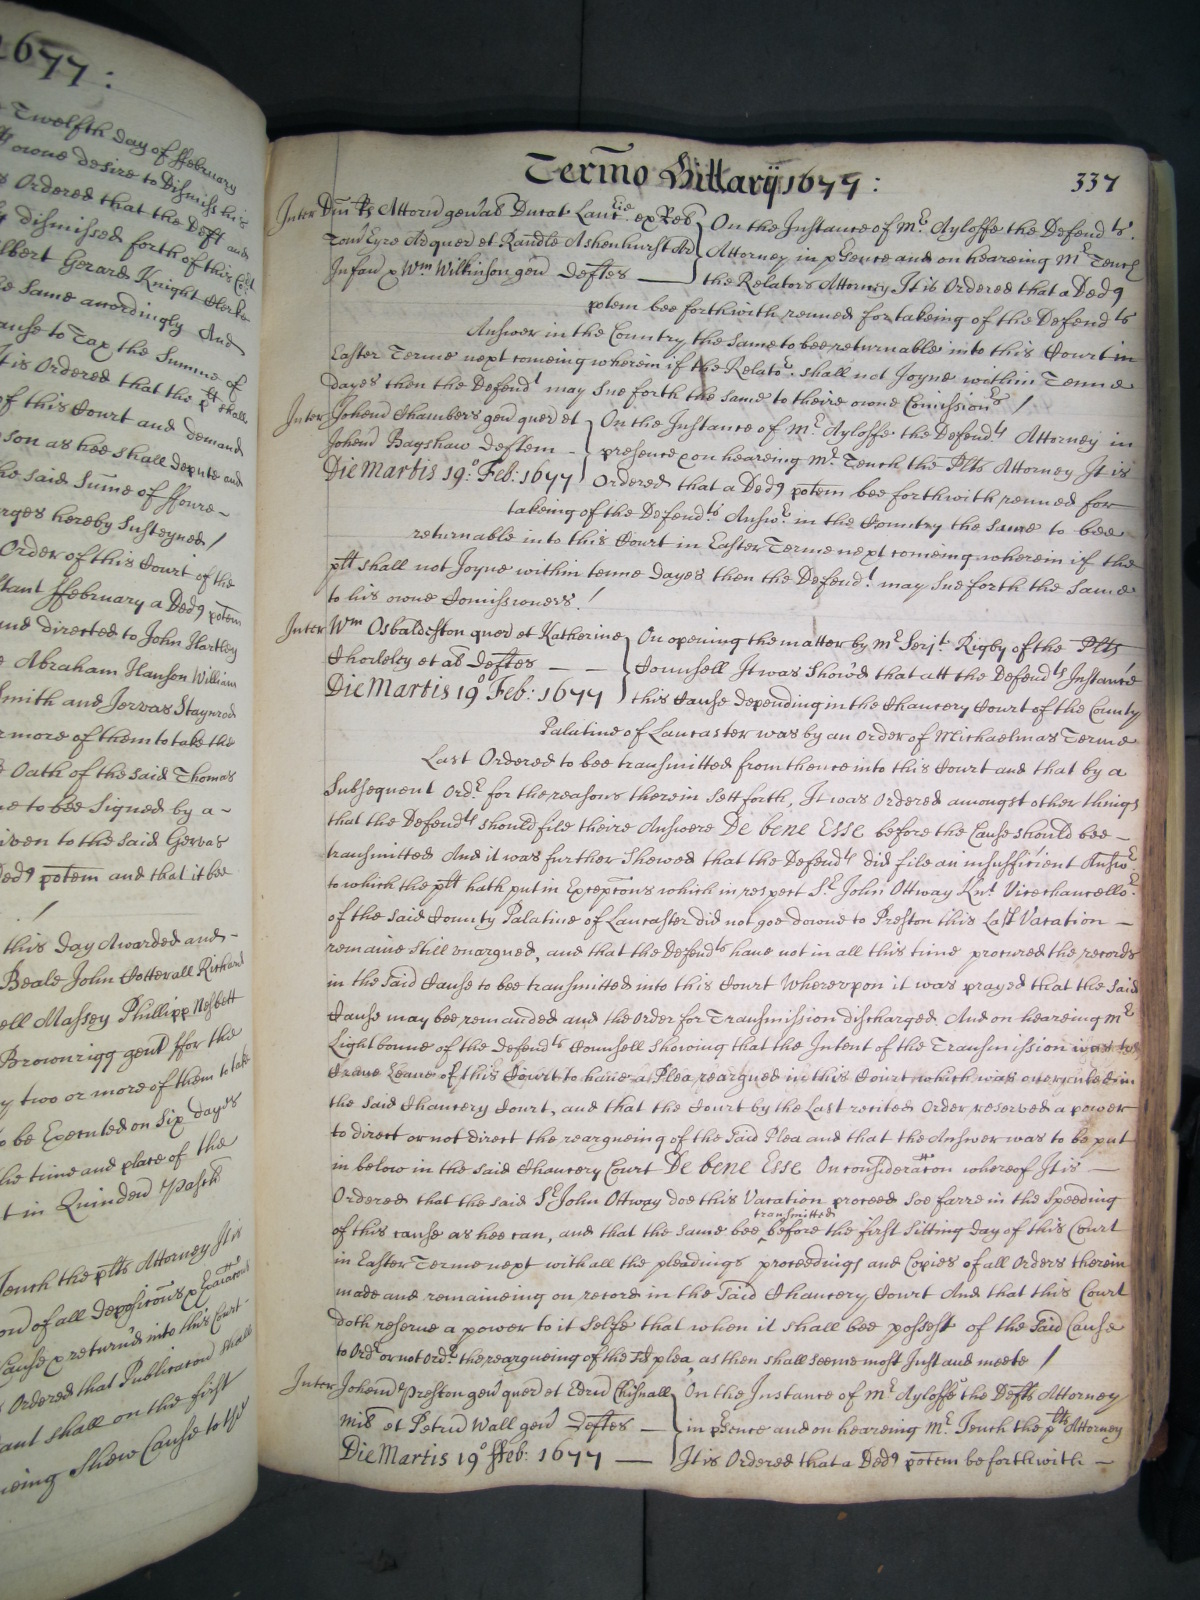 1677:
Twelfth day of ffebruary
owne desire to Dismiss his
Ordered that the Deft and
dismissed forth of this Cot
Gerard Knight Clerke
same accordingly And
Cause to Tax the Summe of
it is Ordered that the plt shall
of this Court and demand
son as hee shall depute and
the said Sume of ffoure~
hereby Susteyned /
Order of this Court of the
ffebruary a Ded9 potem
and directed to John Hartley
Abraham Hanson William
Smith and Jervas Staynrod
more of them to take the
Oath of the said Thomas
to bee Signed by a~
given to the said Gervas
Ded9 potem and that it bee
/
this day Awarded and-
Beale John Cotterall Richard
Massey Phillipp Nesbett
Brownrigg gent ffor the
two or more of them to take
to be Executed on Six dayes
the time and place of the
in Quinden Pasch
Tench the plts Attorney It is
of all depositons
Cause returnd into this Court
Ordered that Publicacon shall
shall on the first
Shew Cause to
Termo Hillarij 1677:
337
Inter Dm Rs Attorn gen'al Ducat Lanc:ie ex Rel
On the Instance of Mr Ayloffe the Defend ts.
Tom Eyre Ad quer et Randle Ashenhurst
Attorney in psence and on heareing Mr Tench
Infan p Wm Wilkinson gen deftes —
the Relators Attorney It is Ordered that a Ded9
potem bee forthwith renued for takeing of the Defend ts
Answer in the Country the same to bee returnable into this Court in
Easter Terme next comeing wherein if the Relator. shall not Joyne within Tenne
dayes then the Defend t may Sue forth the same to theire owne Comissionrs /
Inter Johem Chambers gen quer et
On the Instance of Mr Ayloffe the Defend ts Attorney in
Johem Bagshaw deftem -
presence & on heareing Mr. Tench the Plts Attorney It is
Die Martis 19:o Feb: 1677
Ordered that a Ded9 potem bee forthwith renued for
takeing of the Defend ts Answr. in the Country the same to bee
returnable into this Court in Easter Terme next comeing wherein if the
plt shall not Joyne within tenne dayes then the Defend.t may Sue forth the same
to his owne Comissioners. /
Inter Wm Osbaldeston quer et Katherine
On opening the matter by mr Serjt. Rigby of the Plts
Chorleley et al deftes — —
Councell It was Show'd that att the Defend ts Instance
Die Martis 19o Feb: 1677
this Cause depending in the Chancery Court of the County
Palatine of Lancaster was by an order of Michaelmas Terme
Last Ordered to bee transmitted from thence into this Court and that by a
Subsequent Ordr. for the reasons therein Sett forth, It was Ordered amongst other things
that the Defend ts should file theire Answere De bene Esse before the Cause should bee –
transmitted And it was further Shewed that the Defend ts did file an insufficient Answr
to which the plt hath put in Exceptons which in respect Sr John Ottway Knt. Vicechancellor.
of the said County Palatine of Lancaster did not goe downe to Preston this Last Vacation –
remaine still vnargued, and that the Defend ts haue not in all this time procured the records
in the said Cause to bee transmitted into this Court Wherevpon it was prayed that the said
Cause may bee remanded and the Order for Transmission discharged And on heareing mr
Lightbowne of the Defend ts Councell Showing that the Intent of the Transmission was to
Craue Leaue of this Court to haue a Plea reargued in this Court which was overruled in
the said Chancery Court, and that the Court by the Last recited Order reserved a power
to direct or not direct the reargueing of the said Plea and that the Answer was to be put
in below in the said Chancery Court De bene Esse On consideracon whereof It is —
Ordered that the said Sr John Ottway doe this Vacation proceed soe farre in the Speeding
of this cause as hee can, and that the same bee ^transmitted before the first Sitting day of this Court
in Easter Terme next with all the pleadings proceedings and Copies of all Orders therein
made and remaineing on record in the said Chancery Court And that this Court
doth reserue a power to it Selfe that when it shall bee possest of the said Cause
to Ordr or not Ordr. the reargueing of the sd plea, as then shall seeme most Just and meete /
Inter Johem Preston gen quer et Edrū Chisnall
On the Instance of Mr Ayloffe the Defts Attorney
mil et Petrū Wall gen deftes —
in psence and on heareing Mr. Tench the plts Attorney
Die Martis 19o ffeb: 1677 —
It is Ordered that a Ded9 potem be forthwith ~